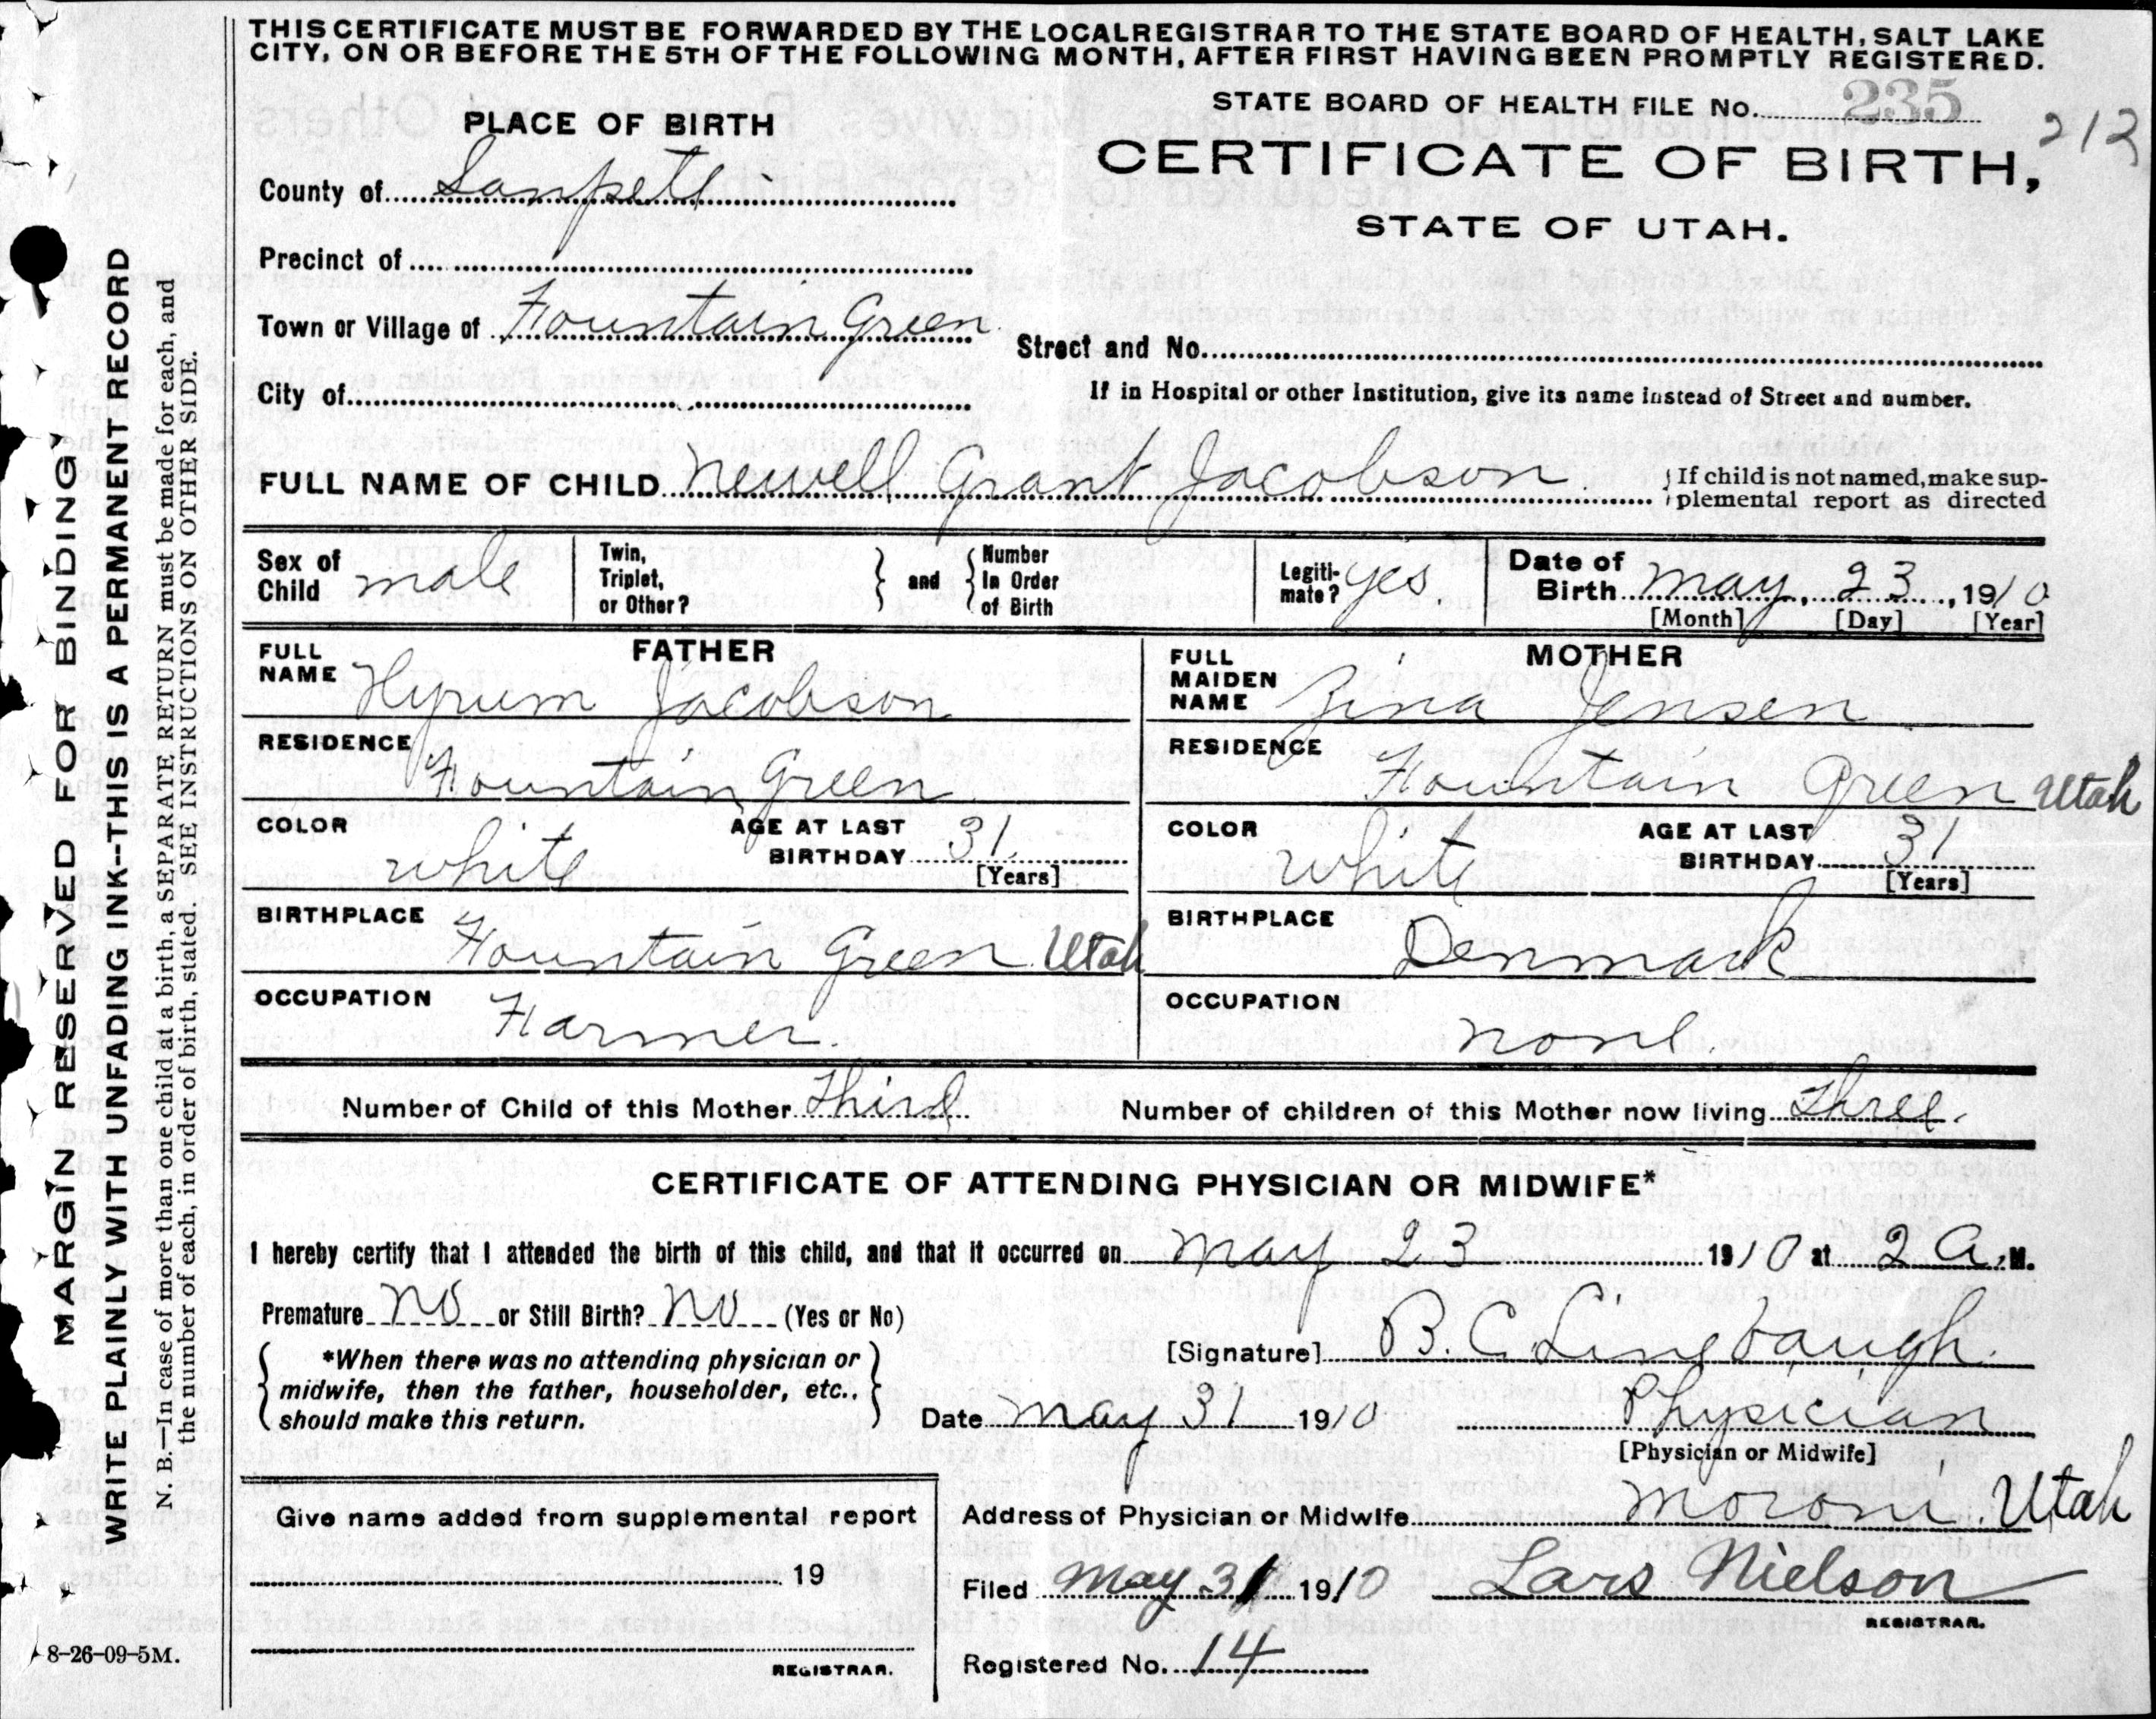 THIS CERTIFICATE MUST BE FORWARDED BY THE LOCAL REGISTRAR TO THE STATE BOARD OF HEALTH, SALT LAKE
CITY, ON OR BEFORE THE 5TH OF THE FOLLOWING MONTH, AFTER FIRST HAVING BEEN PROMPTLY REGISTERED.
STATE BOARD OF HEALTH FILE No. 235
212
PLACE OF BIRTH
CERTIFICATE OF BIRTH,
STATE OF UTAH.
County of Sanpete
Precinct of
Town or Village of Fountain Green
Street and No.
City of
If in Hospital or other Institution, give its name instead of Street and number.
FULL NAME OF CHILD Newell Grant Jacobson
If child is not named, make sup-
plemental report as directed
Sex of Child male
Twin, Triplet, or Other?
and
Number In Order of Birth
Legiti-mate? yes.
Date of Birth May, 23, 1910
[Month] [Day] [Year]
FATHER
FULL NAME Hyrum Jacobson
RESIDENCE Fountain Green
COLOR white
AGE AT LAST BIRTHDAY 31
[Years]
BIRTHPLACE Fountain Green Utah
OCCUPATION Farmer.
MOTHER
FULL MAIDEN NAME Zina Jensen
RESIDENCE Fountain Green Utah
COLOR white
AGE AT LAST BIRTHDAY 31
[Years]
BIRTHPLACE Denmark
OCCUPATION none.
Number of Child of this Mother Third
Number of children of this Mother now living Three.
CERTIFICATE OF ATTENDING PHYSICIAN OR MIDWIFE*
I hereby certify that I attended the birth of this child, and that it occurred on May 23 1910 at 2 A.M.
Premature No or Still Birth? No (Yes or No)
*When there was no attending physician or
midwife, then the father, householder, etc.,
should make this return.
[Signature] B. C. Linebaugh.
Date May 31 1910
Physician
[Physician or Midwife]
Give name added from supplemental report
19
REGISTRAR.
Address of Physician or Midwife Moroni. Utah
Filed May 31 1910
Lars Nielson
REGISTRAR.
Registered No. 14
MARGIN RESERVED FOR BINDING
WRITE PLAINLY WITH UNFADING INK--THIS IS A PERMANENT RECORD
N. B.—In case of more than one child at a birth, a SEPARATE RETURN must be made for each, and
the number of each, in order of birth, stated. SEE INSTRUCTIONS ON OTHER SIDE.
8-26-09-5M.